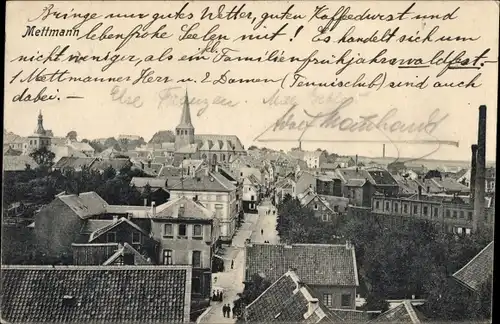 Mettmann
Bringe nur gutes Wetter, guten Kaffeedurst und
lebensfrohe Seelen mit! Es handelt sich um
nicht weniger, als ein Familienfrühjahrswaldfest.—
1 Mettmanner Herr u. 2 Damen (Tennisclub) sind auch
dabei.—
Else
Adolf